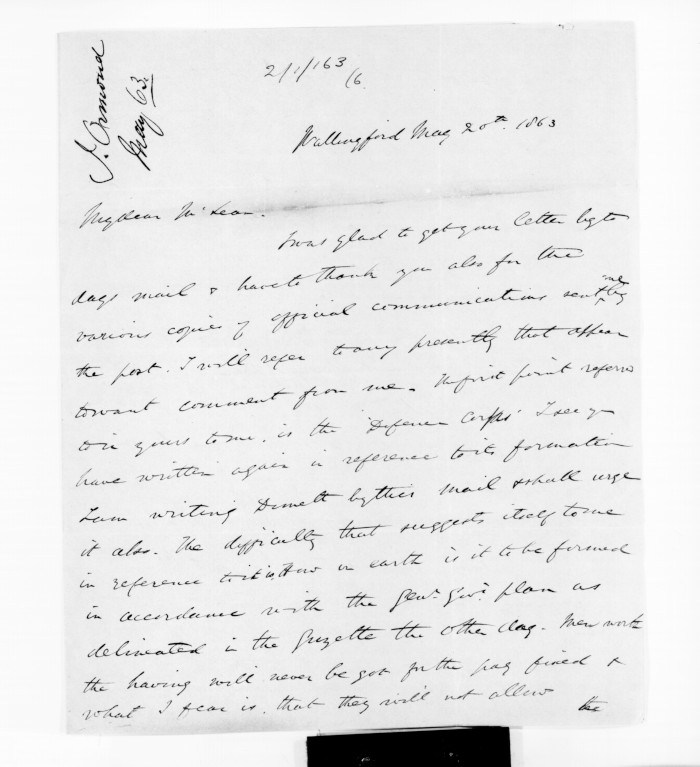 J. Ormond
May 63.
2/1/163
/6.
Wallingford May 20th. 1863
My dear McLean.
I was glad to get your letter by to
days mail & have to thank you also for the
various copies of official communications sent me by
the post. I will refer to any presently that appear
to want comment from me. The first point referred
to in yours to me, is the 'Defence Corps' I see you
have written again in reference to its formation
I am writing Domett by this mail & shall urge
it also. The difficulty that suggests itself to me
in reference to it is How on earth is it to be formed
in accordance with the Genl. Govt. plan as
delineated in the Gazette the other day. Men worth
the having will never be got for the pay fixed &
what I fear is, that they will not allow
the